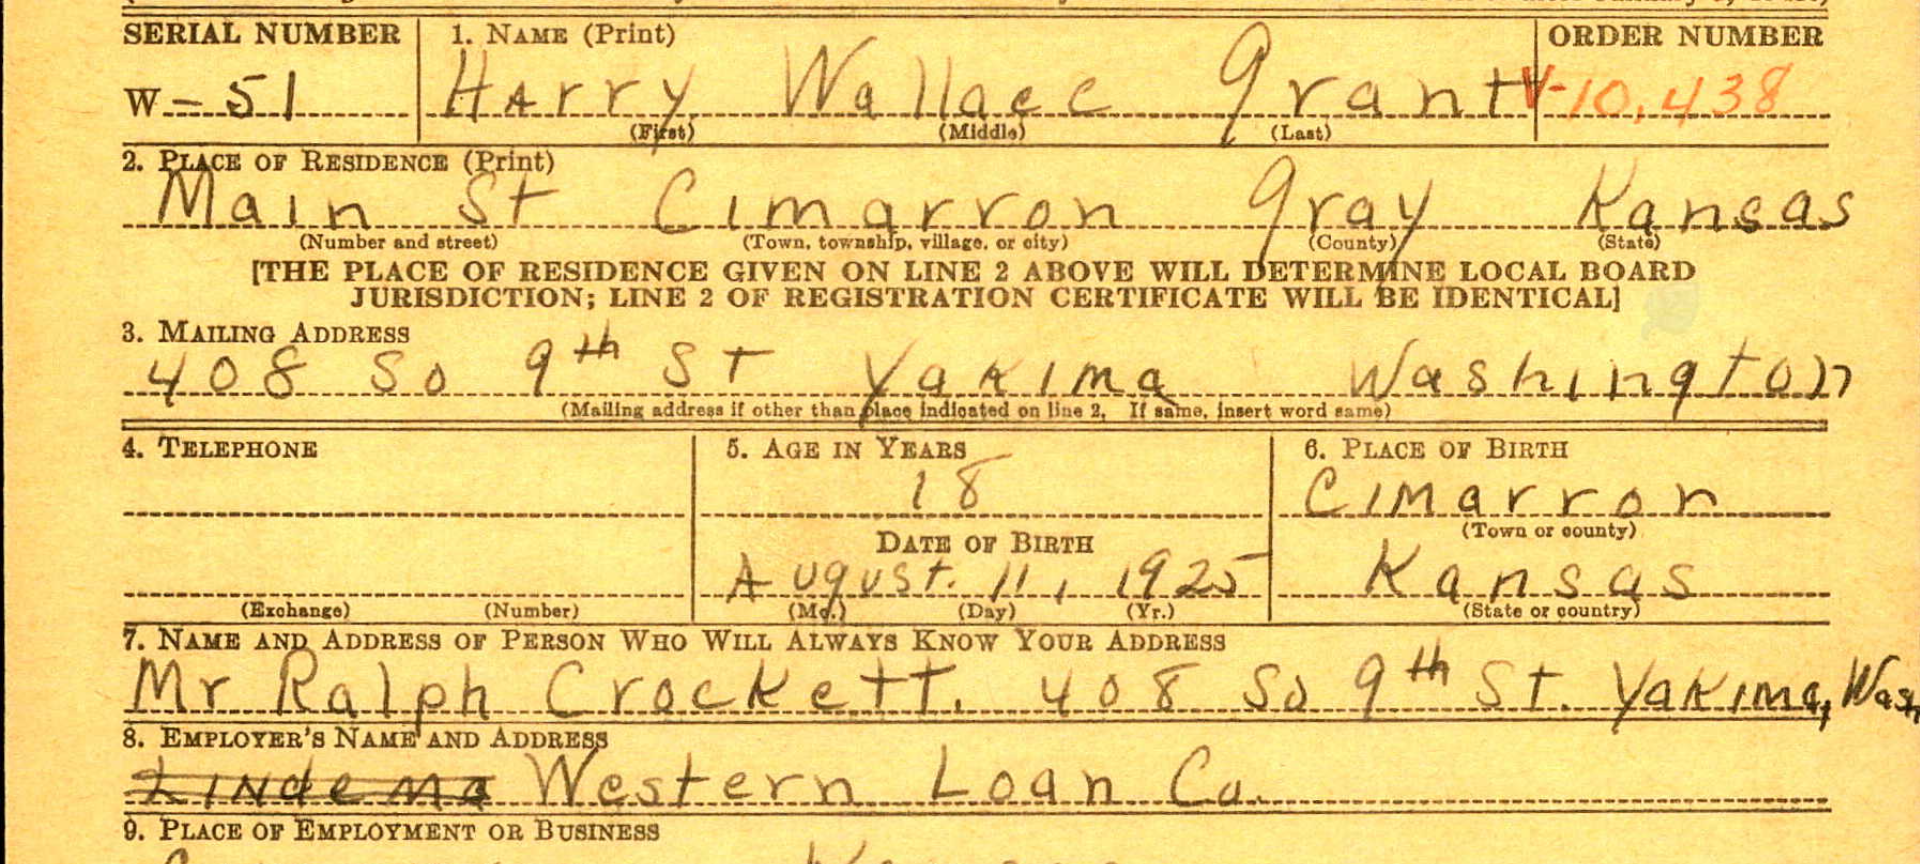 SERIAL NUMBER 1. NAME (Print) ORDER NUMBER
W-51 Harry Wallace Grant V-10,438
(First) (Middle) (Last)
2. PLACE OF RESIDENCE (Print)
Main St Cimarron Gray Kansas
(Number and street) (Town, township, village, or city) (County) (State)
[THE PLACE OF RESIDENCE GIVEN ON LINE 2 ABOVE WILL DETERMINE LOCAL BOARD
JURISDICTION; LINE 2 OF REGISTRATION CERTIFICATE WILL BE IDENTICAL]
3. MAILING ADDRESS
408 So 9th St Yakima Washington
(Mailing address if other than place indicated on line 2. If same, insert word same)
4. TELEPHONE 5. AGE IN YEARS 6. PLACE OF BIRTH
18 Cimarron
(Town or county)
DATE OF BIRTH
August. 11, 1925 Kansas
(Exchange) (Number) (Mo.) (Day) (Yr.) (State or country)
7. NAME AND ADDRESS OF PERSON WHO WILL ALWAYS KNOW YOUR ADDRESS
Mr Ralph Crockett. 408 So 9th St. Yakima, Wash
8. EMPLOYER'S NAME AND ADDRESS
Lindema Western Loan Co.
9. PLACE OF EMPLOYMENT OR BUSINESS